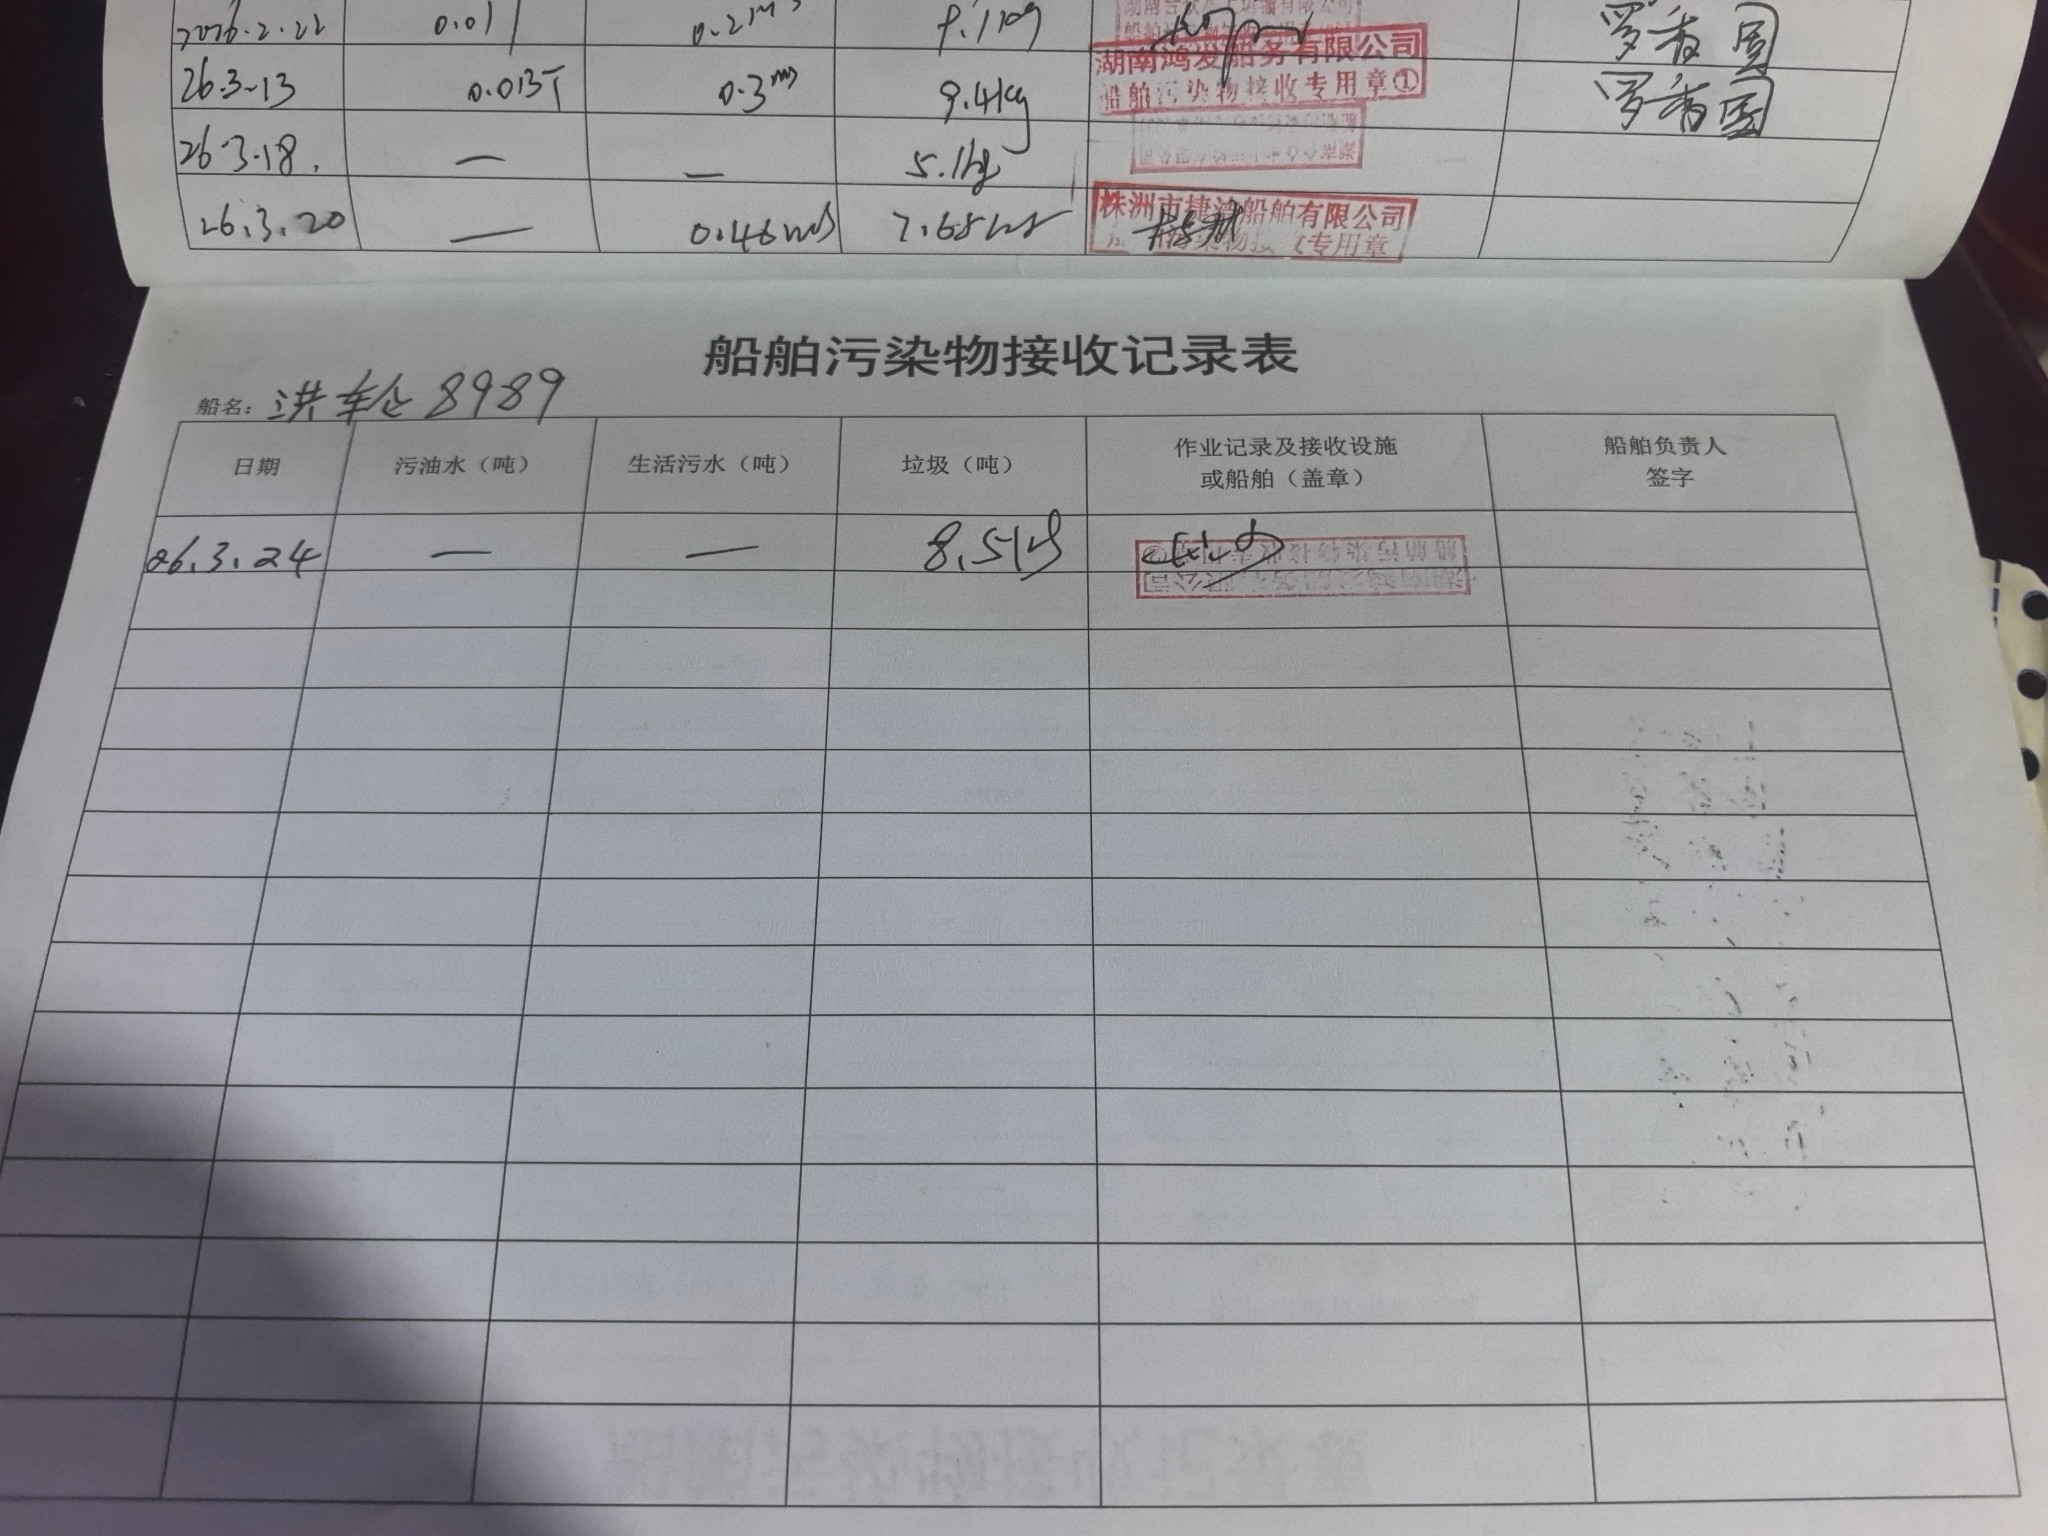 2026.2.22 0.01 0.2m³ 9.1kg 罗香国
湖南鸿发船务有限公司
船舶污染物接收专用章①
26.3.13 0.013T 0.3m³ 9.4kg 罗香国
26.3.18. — — 5.1kg
株洲市捷 船舶有限公司
染物接收专用章
26.3.20 — 0.46m3 7.68kg
船舶污染物接收记录表
船名: 洪轮8989
日期 污油水（吨） 生活污水（吨） 垃圾（吨） 作业记录及接收设施 船舶负责人
或船舶（盖章） 签字
26.3.24 — — 8.5kg
船舶污染物接收专用章②